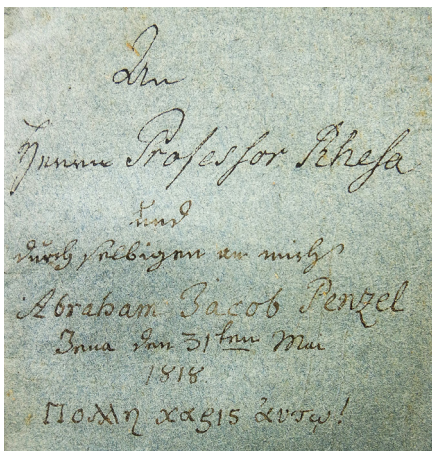 An
Herrn Professor Rhesa
und
durch selbigen an mich
Abraham Jacob Penzel
Jena den 31ten Mai
1818
Πολλη χαρις ἀυτῳ!